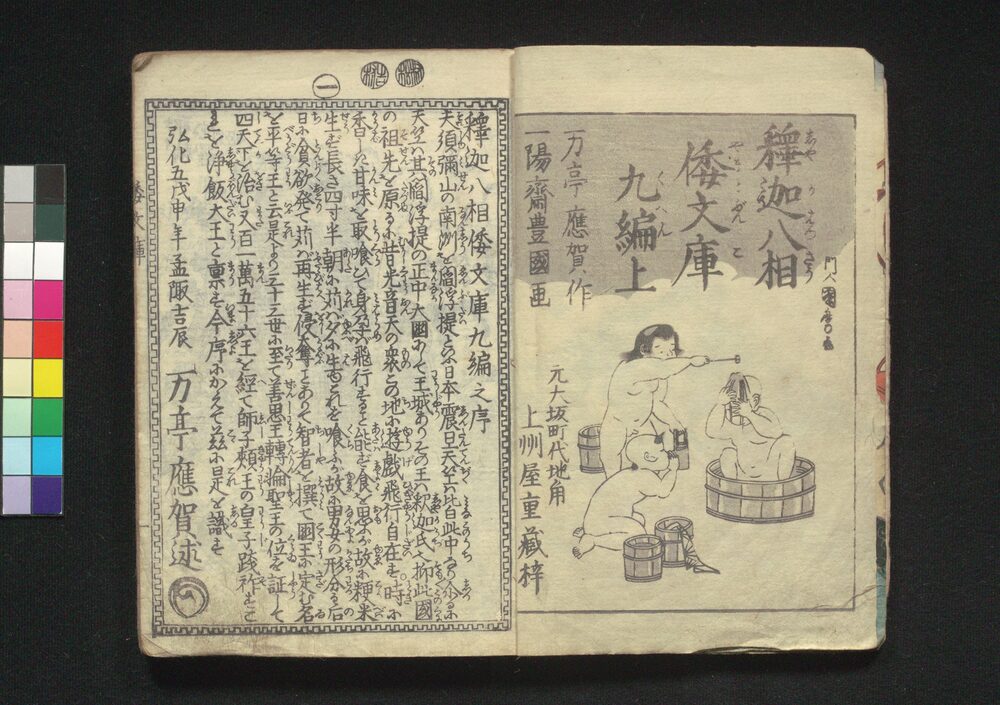 釋迦八相
倭文庫
九編上
万亭應賀作
一陽齋豊國画
門人國麿画
元大坂町代地角
上州屋重藏梓
釋迦八相倭文庫九編之序
夫須彌山の南洲を閻浮提と云日本震旦天竺ハ皆此中
天竺ハ其閻浮提の正中大國にて王城ありその王ハ釈迦氏抑此國
の祖先を原るに昔光音天の衆この地に遊戯飛行自在す時に
香しき甘味を取喰ひて身重く飛行する能ず食を思ふが故に粳米
生ず長さ四寸半朝に苅バ夕に生ずこれを喰ふが故に男女の形分る后
日に貪欲発て苅バ再生ず侵奪とありて智者を撰で國王に定む名
を平等王と云是より三十三世に至て善思王轉輪聖王の位を証して
四天下を治む又百一萬五十六王を経て師子頰王の皇子践祚まし
を浄飯大王と稟を今序にかへて茲に是を識す
弘化五戊申年孟陬吉辰
万亭應賀述
倭文庫
一